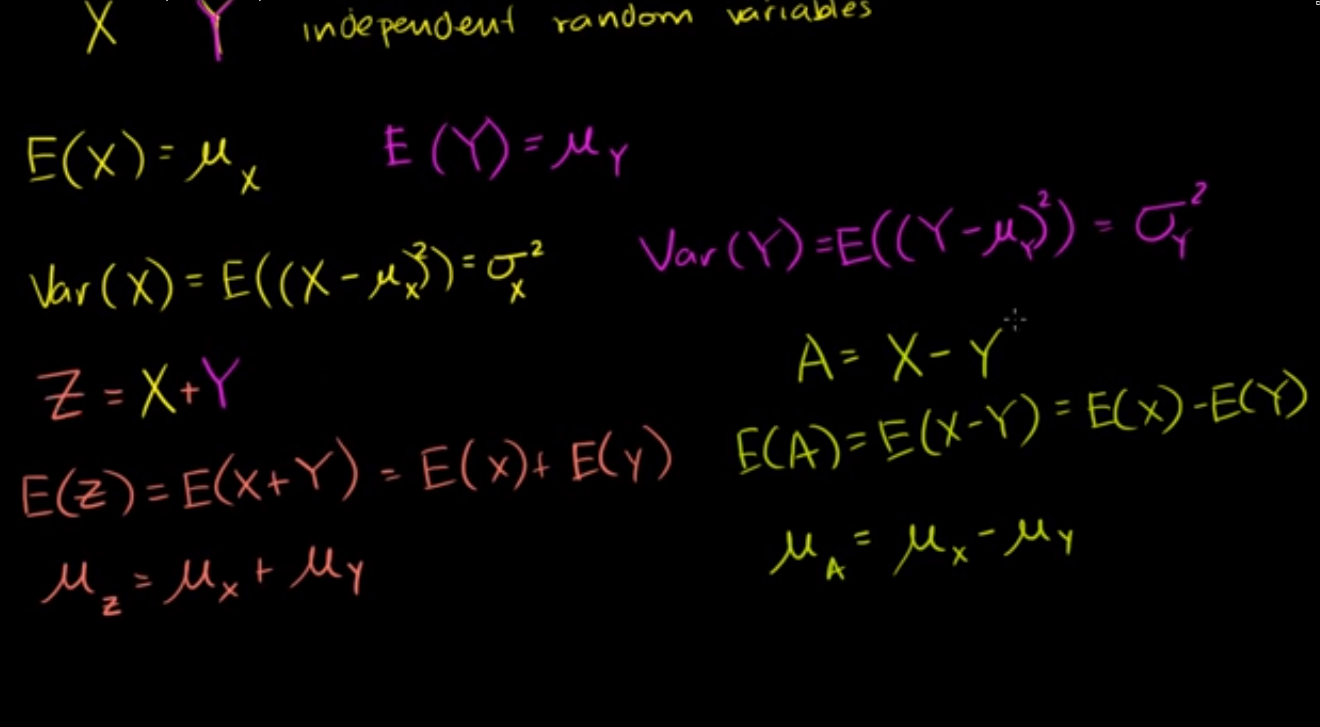 X Y independent random variables
E(X) = μ_X E(Y) = μ_Y
Var(X) = E((X - μ_X)²) = σ_X² Var(Y) = E((Y - μ_Y)²) = σ_Y²
Z = X + Y A = X - Y
E(Z) = E(X + Y) = E(X) + E(Y) E(A) = E(X - Y) = E(X) - E(Y)
μ_Z = μ_X + μ_Y μ_A = μ_X - μ_Y